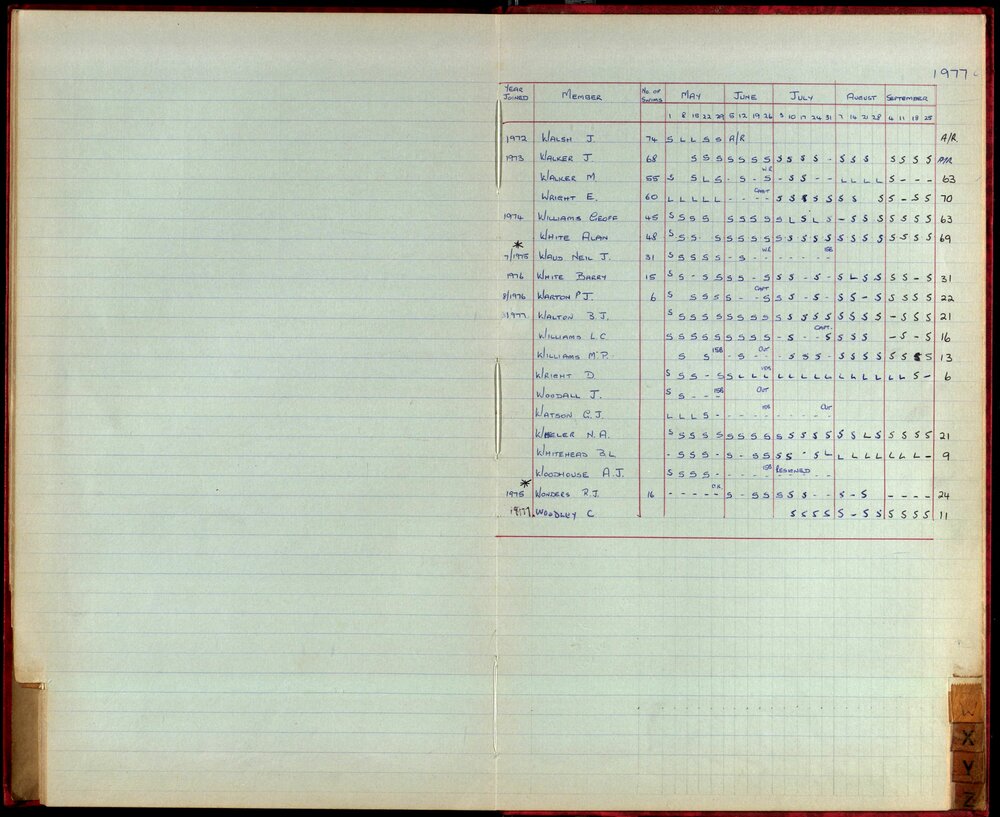 1977
YEAR JOINED MEMBER No. OF SWIMS MAY JUNE JULY AUGUST SEPTEMBER
1 8 15 22 29 5 12 19 26 3 10 17 24 31 7 14 21 28 4 11 18 25
1972 WALSH J. 74 S L L S S A/R A/R
1973 WALKER J. 68 S S S S S S S S S S S - S S S S S S S A/R
WALKER M 55 S S L S - S - W.R. S - S S - - L L L L S - - - 63
WRIGHT E. 60 L L L L L - - CAPT - - S S S S S S S S S - S S 70
1974 WILLIAMS GEOFF 45 S S S S S S S S S L S L S - S S S S S S S 63
WHITE ALAN 48 S S S S S S S S S S S S S S S S S S S S S 69
* 7/1975 WAUD NEIL J. 31 S S S S S - S W.R. - - - - - 15B
1976 WHITE BARRY 15 S S - S S S S - S S S - S - S L S S S S - S 31
8/1976 WARTON P.J. 6 S S S S S S - CAPT - S S S - S - S S - S S S S S 22
1977 WALTON B.J. S S S S S S S S S S S S S S S S S S - S S S 21
WILLIAMS L.C S S S S S S S S S - S - CAPT. - S S S S - S - S 16
WILLIAMS M.P. S S 15B - S - OUT - S S S - S S S S S S S S 13
WRIGHT D S S S - S S L L L L L L L L L L L L L L S - 6
WOODALL J. S S - - - 15B OUT
WATSON G.J. L L L S - - - - - 15B - - - - - OUT
WHEELER N.A. S S S S S S S S S S S S S S S S L S S S S S 21
WHITEHEAD B.L - S S S - S - S S S S - S L L L L L L L L - 9
WOODHOUSE A.J. S S S S - - - - - 15B RESIGNED
* 1975 WONDERS R.J. 16 - - - - - S - S S S S S - - S - S - - - - 24
1977. WOODLEY C S S S S S - S S S S S S 11
W
X
Y
Z